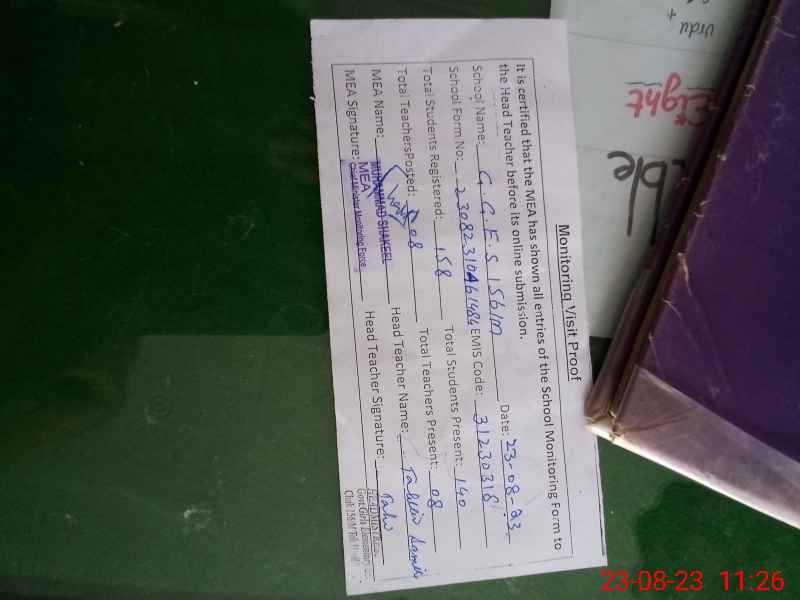 Monitoring Visit Proof
It is certified that the MEA has shown all entries of the School Monitoring Form to
the Head Teacher before its online submission.
School Name: G.G.E.S 156/m Date: 23-08-23
School Form No: 230823104461484 EMIS Code: 31230318
Total Students Registered: 158 Total Students Present: 140
Total TeachersPosted: 08 Total Teachers Present: 08
MEA Name: MUHAMMAD SHAKEEL Head Teacher Name:
MEA Signature: MEA Head Teacher Signature:
Chief Minister Monitoring Force
HEADMISTRESS
Govt Girls Elementary
Chak 156/M
urdu +
Eight
ble
23-08-23 11:26